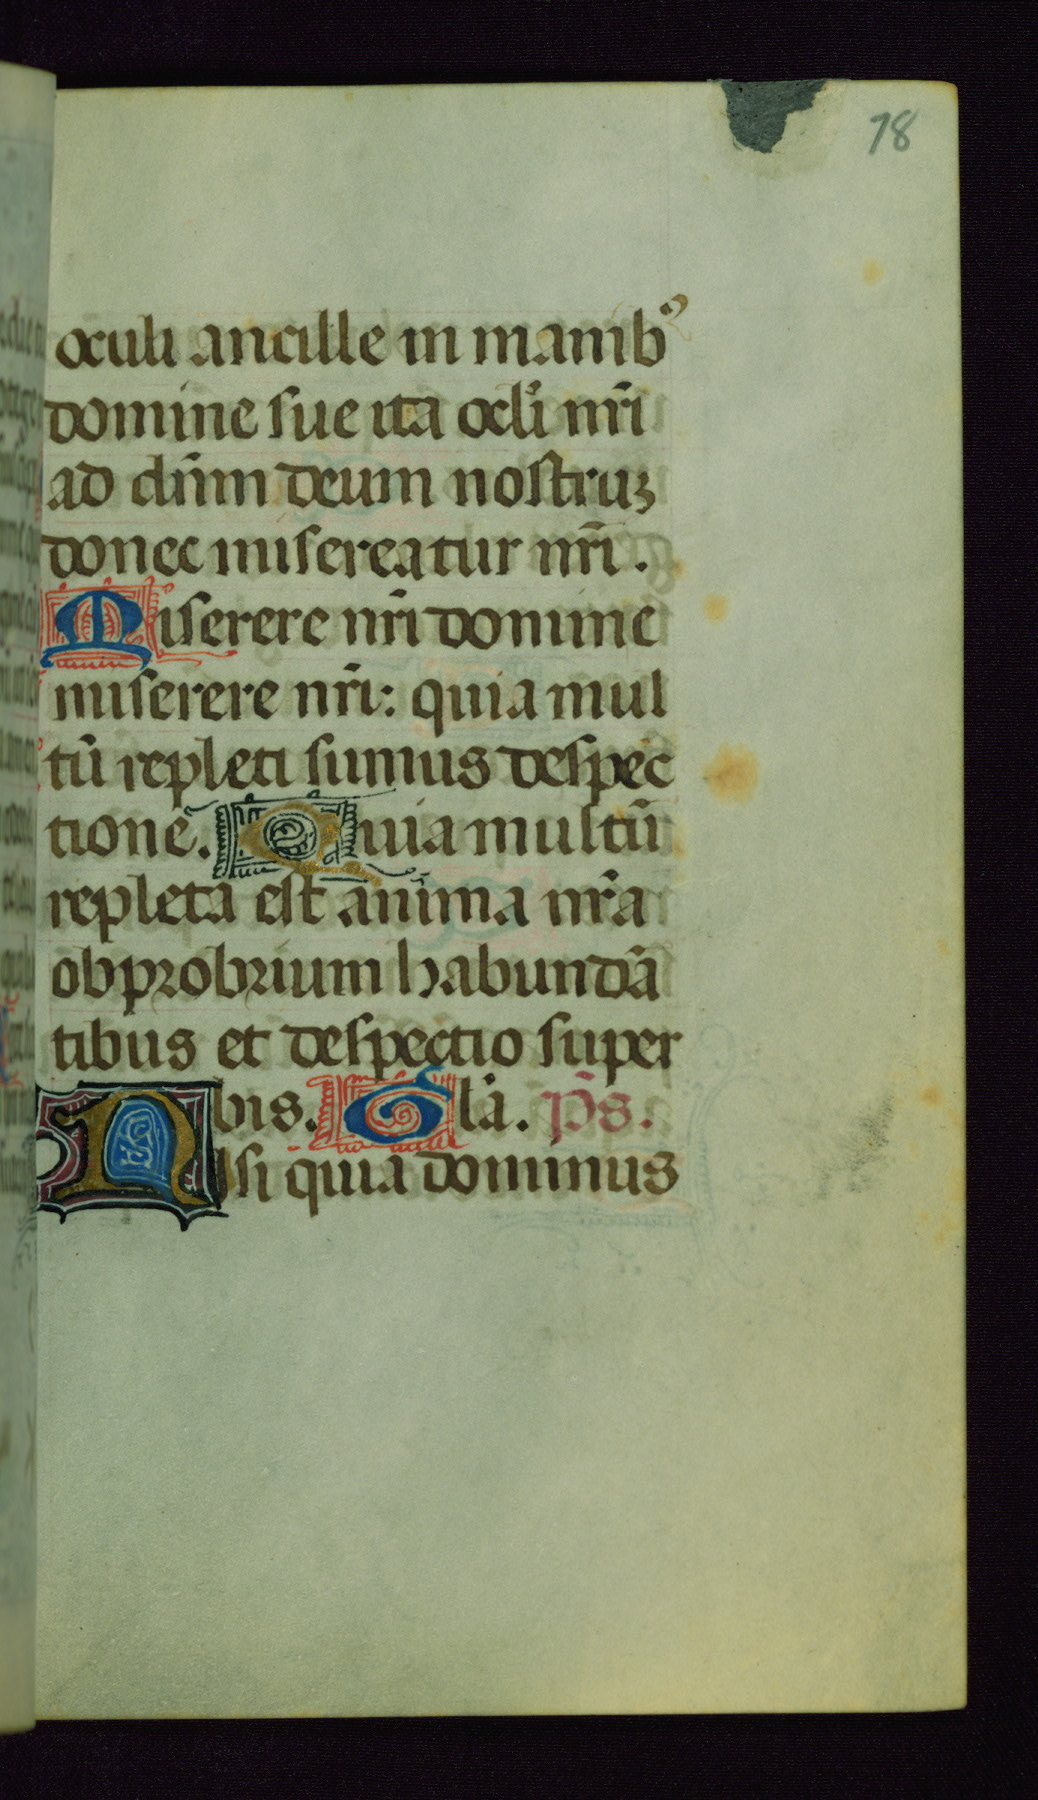 78
oculi ancille in manibꝰ
domine sue ita ocl̓i nr̄i
ad dn̄m deum nostruꝫ
donec misereatur nr̄i.
Miserere nr̄i domine
miserere nr̄i: quia mul
tū repleti sumus despec
tione. Quia multū
repleta est anima nr̄a
obprobrium habundā
tibus et despectio super
bis. Gl̄a. p̄s.
Nisi quia dominus